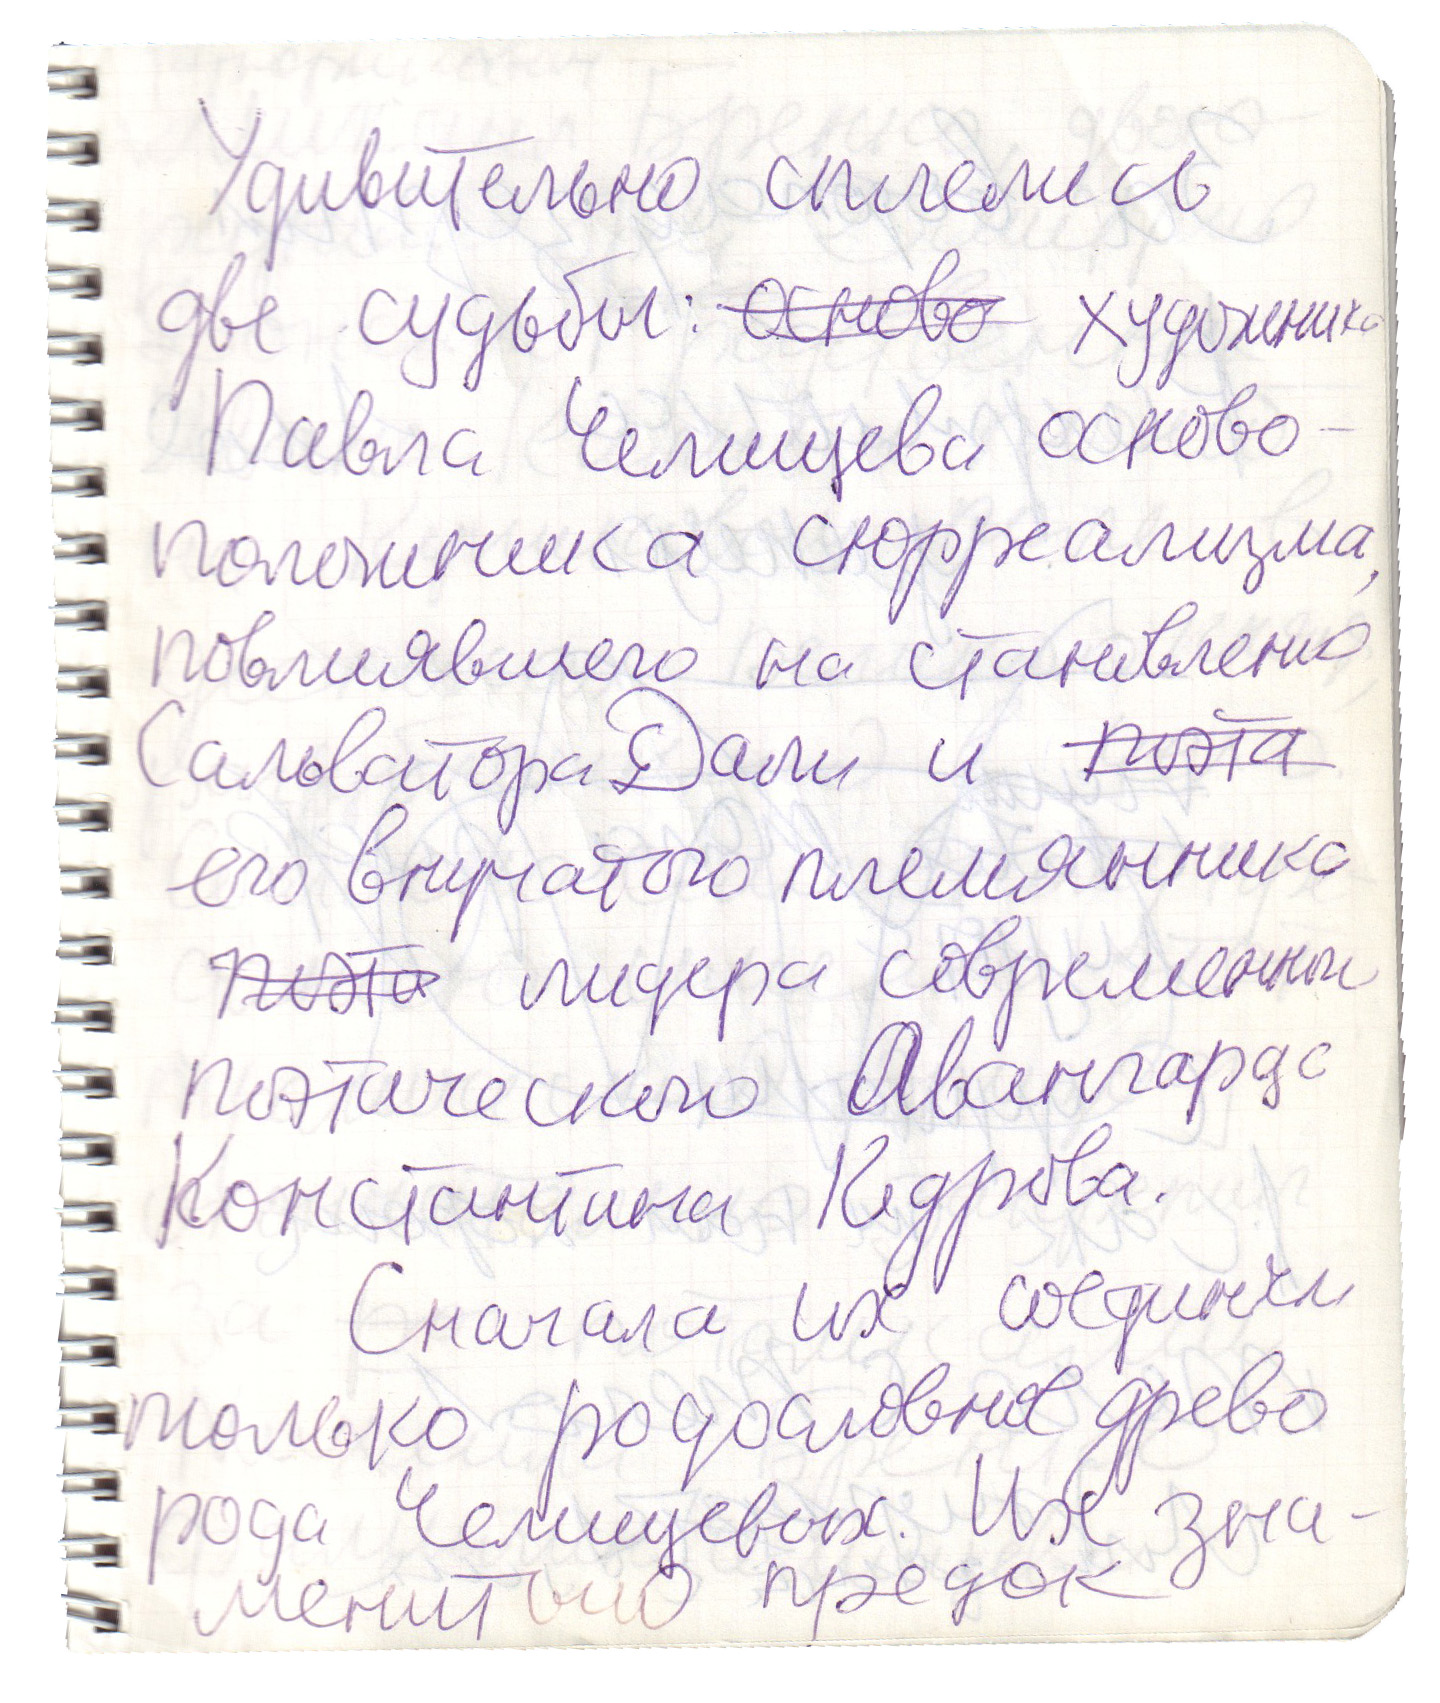 Удивительно сплелись
две судьбы: осново художника
Павла Челищева осново-
положника сюрреализма,
повлиявшего на становление
Сальватора Дали и поэта
его внучатого племянника
поэта лидера современный
поэтического Авангарда
Константина Кедрова.
Сначала их соединяли
только родословное древо
рода Челищевых. Их зна-
менитый предок